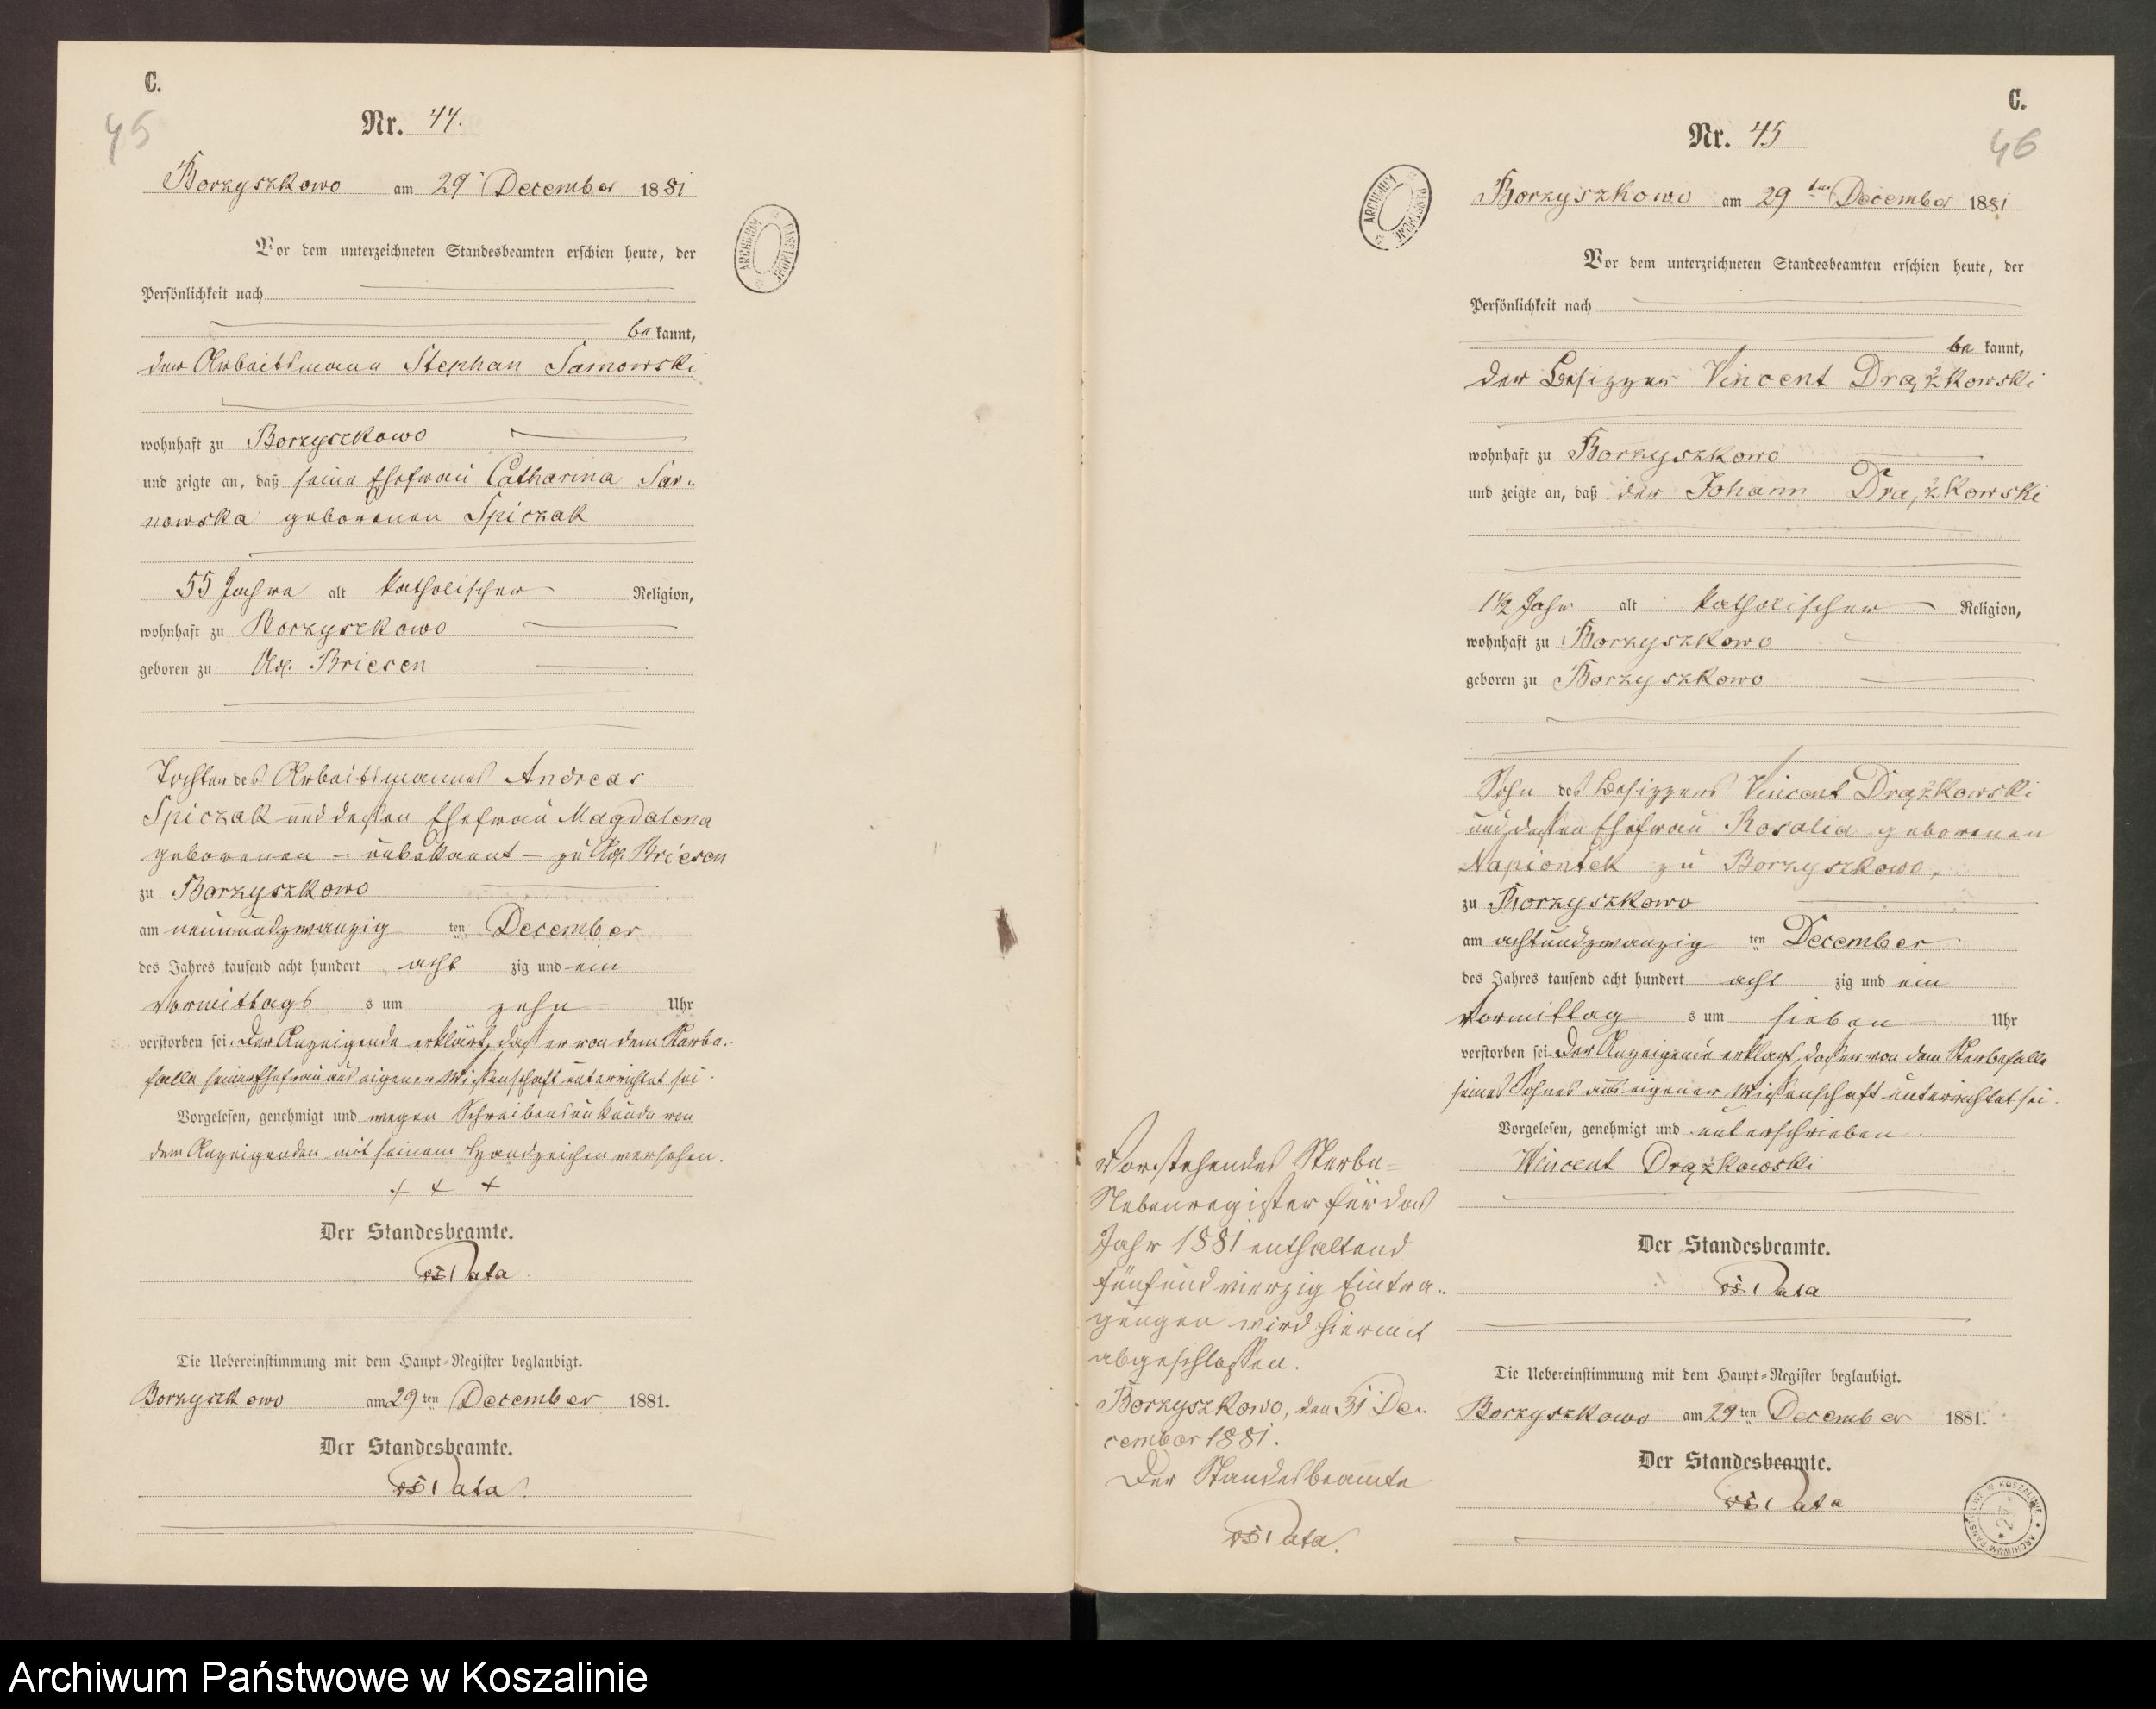 C.
45
Nr. 44.
Borzyszkowo am 29 December 1881
Vor dem unterzeichneten Standesbeamten erschien heute, der
Persönlichkeit nach
be kannt,
der Arbeitsmann Stephan Sarnowski
wohnhaft zu Borzyszkowo
und zeigte an, daß seine Ehefrau Catharina Sar-
nowska geborenen Spiczak
55 Jahre alt katholischer Religion,
wohnhaft zu Borzyszkowo
geboren zu Briesen
Tochter des Arbeitsmannes Andreas
Spiczak und dessen Ehefrau Magdalena
geborenen - unbekannt - zu Briesen
zu Borzyszkowo
am neunundzwanzig ten December
des Jahres tausend acht hundert acht zig und ein
Vormittags s um zehn Uhr
verstorben sei. Der Anzeigende erklärt, daß er von dem Sterbe-
falle seiner Ehefrau aus eigener Wissenschaft unterrichtet sei.
Vorgelesen, genehmigt und wegen Schreibensunkunde von
dem Anzeigenden mit seinem Handzeichen versehen.
+ + +
Der Standesbeamte.
Die Uebereinstimmung mit dem Haupt-Register beglaubigt.
Borzyszkowo am 29 ten December 1881.
Der Standesbeamte.
C.
46
Nr. 45
Borzyszkowo am 29 ten December 1881
Vor dem unterzeichneten Standesbeamten erschien heute, der
Persönlichkeit nach
be kannt,
der Besitzer Vincent Drążkowski
wohnhaft zu Borzyszkowo
und zeigte an, daß der Johann Drążkowski
1½ Jahr alt katholischer Religion,
wohnhaft zu Borzyszkowo
geboren zu Borzyszkowo
Sohn des Besitzers Vincent Drążkowski
und dessen Ehefrau Rosalia geborenen
Napiontek zu Borzyszkowo,
zu Borzyszkowo
am achtundzwanzig ten December
des Jahres tausend acht hundert acht zig und ein
Vormittag s um sieben Uhr
verstorben sei. Der Anzeigende erklärt, daß er von dem Sterbefalle
seines Sohnes aus eigener Wissenschaft unterrichtet sei.
Vorgelesen, genehmigt und unterschrieben.
Wincent Drążkowski
Der Standesbeamte.
Die Uebereinstimmung mit dem Haupt-Register beglaubigt.
Borzyszkowo am 29 ten December 1881.
Der Standesbeamte.
Vorstehendes Sterbe-
Nebenregister für das
Jahr 1881 enthaltend
fünfundvierzig Eintra-
gungen wird hiermit
abgeschlossen.
Borzyszkowo, den 31 De-
cember 1881.
Der Standesbeamte
Archiwum Państwowe w Koszalinie